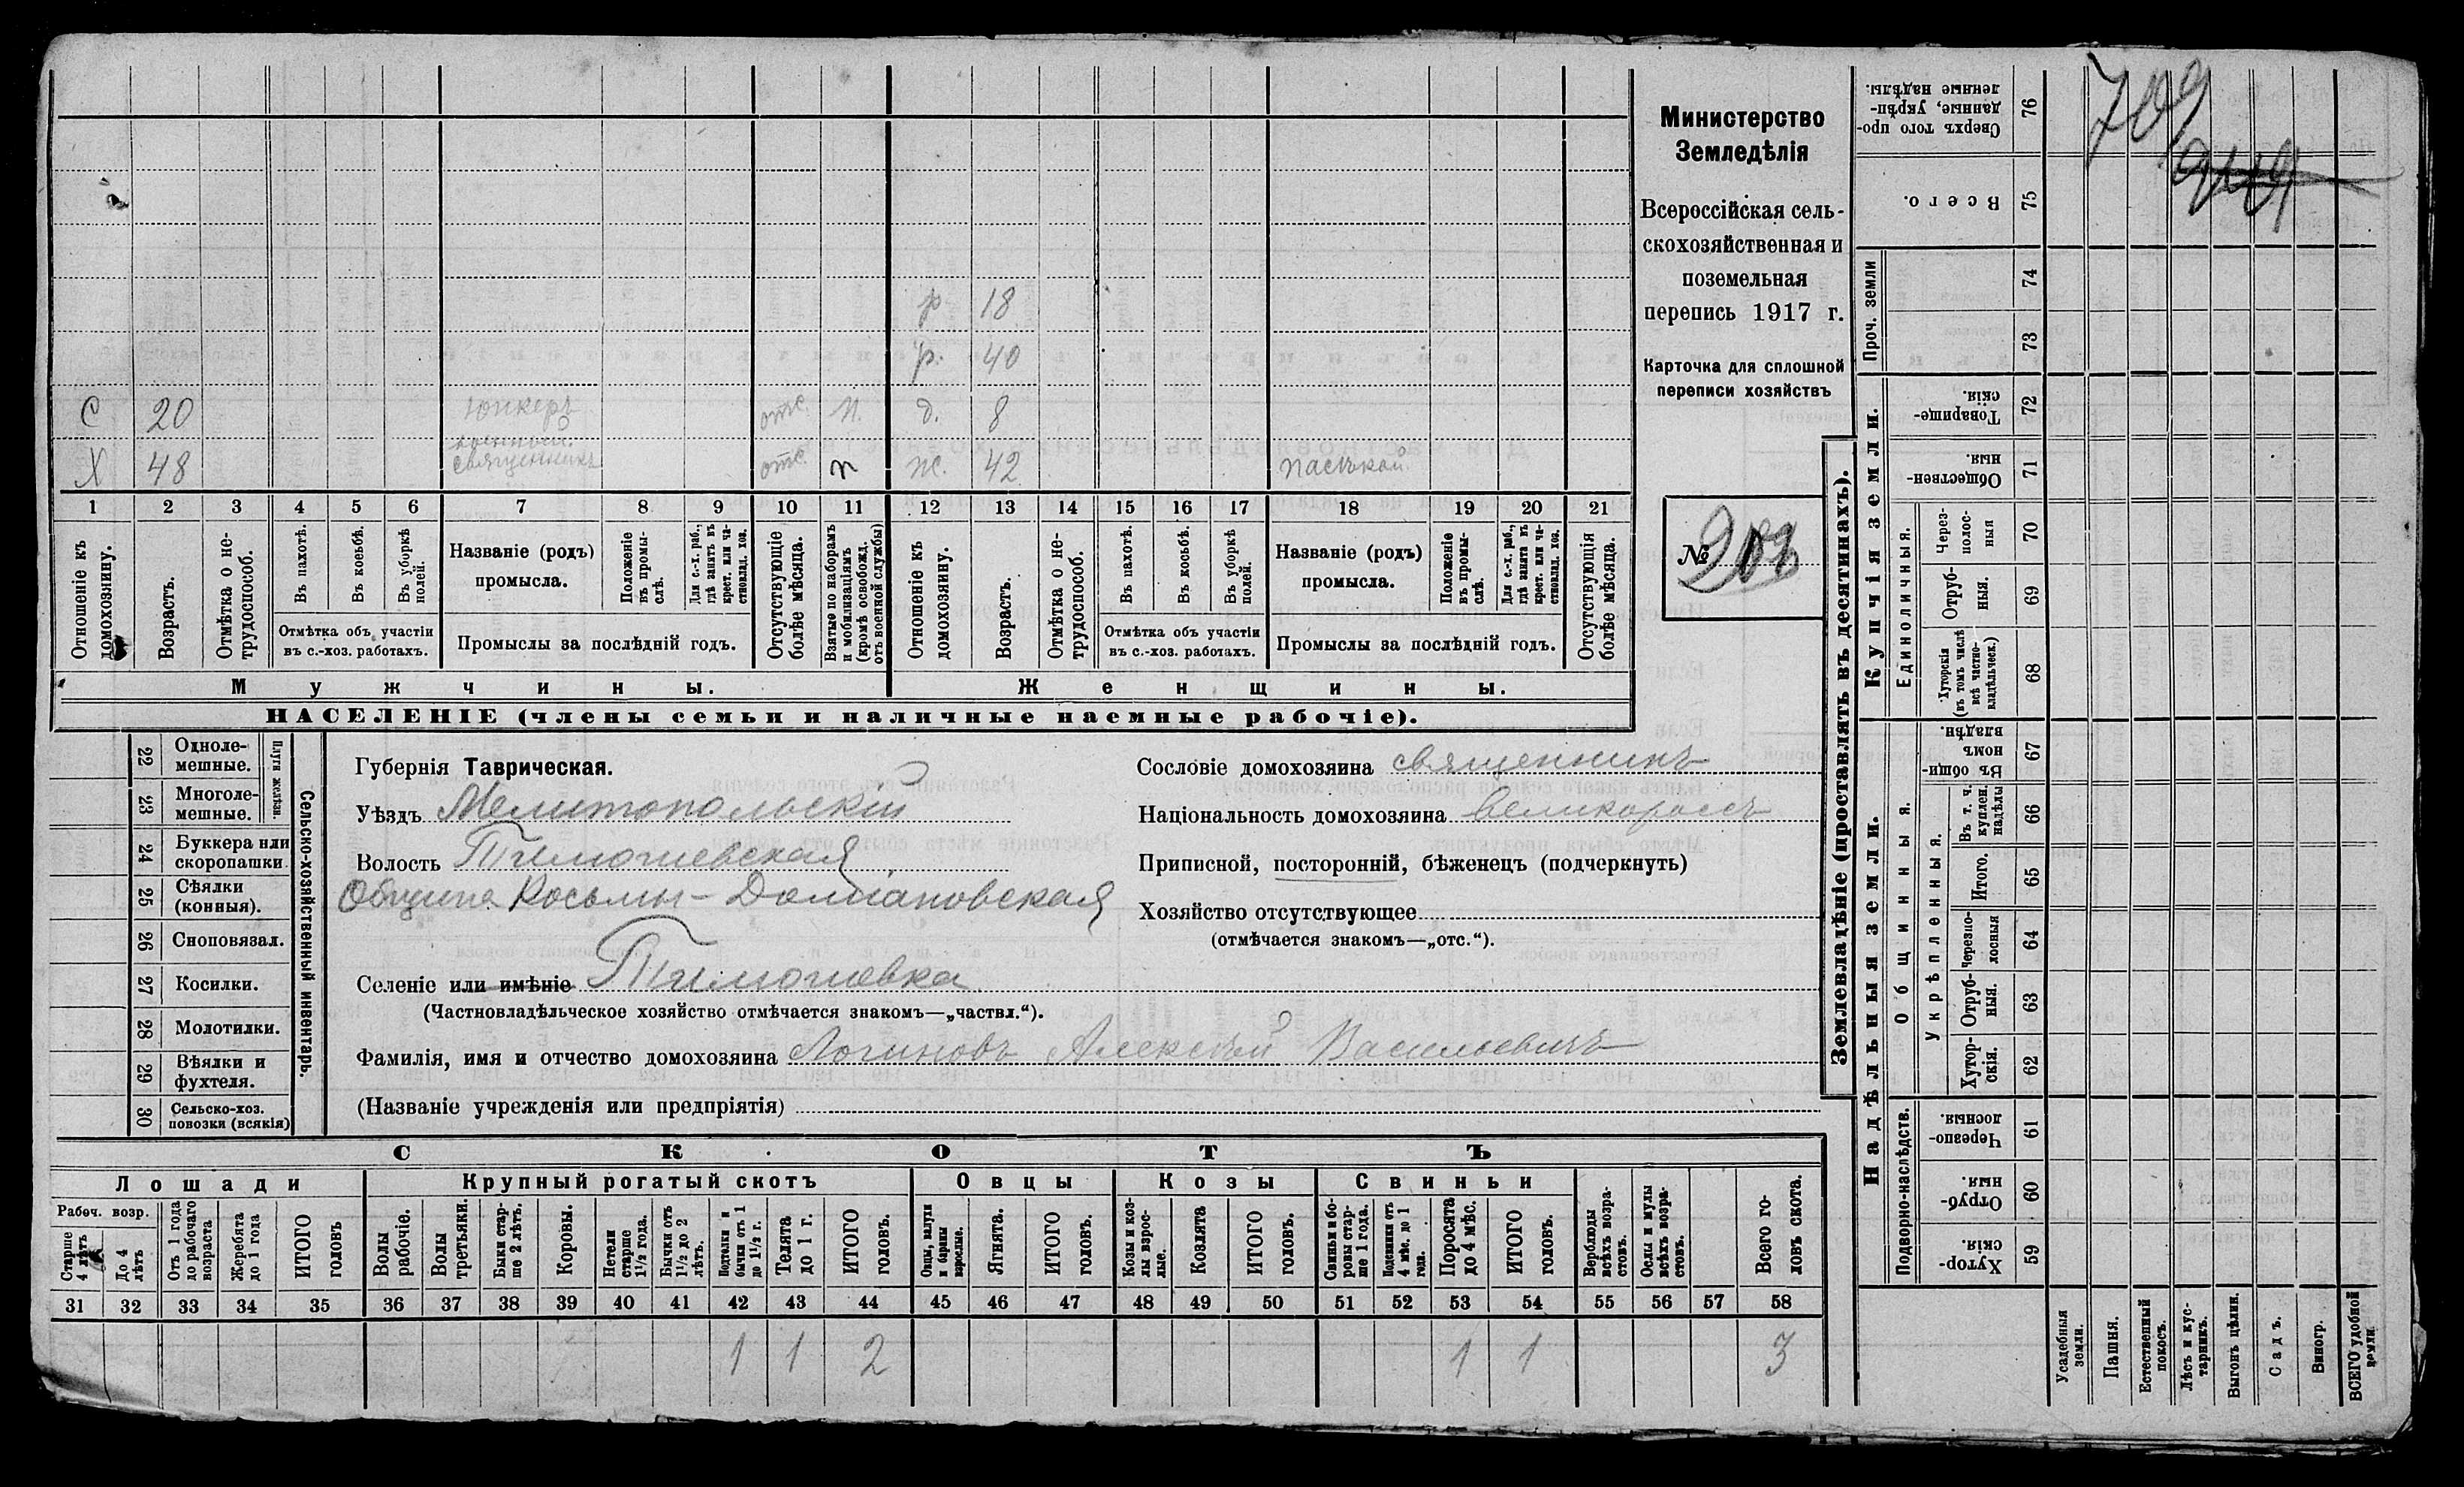 Министерство
Земледѣлія
Всероссійская сель-
скохозяйственная и
поземельная
перепись 1917 г.
Карточка для сплошной
переписи хозяйствъ
№
709
р 18
р. 40
С 20 юнкеръ отс. п. д. 8
военной
Х 48 священникъ отс. п ж. 42 пасѣкой
1 2 3 4 5 6 7 8 9 10 11 12 13 14 15 16 17 18 19 20 21
Отношеніе къ домохозяину.
Возрастъ.
Отмѣтка о не-трудоспособ.
Въ пахотѣ.
Въ косьбѣ.
Въ уборкѣ полей.
Отмѣтка объ участіи
въ с.-хоз. работахъ.
Названіе (родъ)
промысла.
Положеніе въ промы-слѣ.
Для с.-х. раб., гдѣ занятъ въ крест. или ча-стновлад. хоз.
Промыслы за послѣдній годъ.
Отсутствующіе болѣе мѣсяца.
Взятые по наборамъ и мобилизаціямъ (кромѣ освобожд. отъ военной службы)
Отношеніе къ домохозяину.
Возрастъ.
Отмѣтка о не-трудоспособ.
Въ пахотѣ.
Въ косьбѣ.
Въ уборкѣ полей.
Отмѣтка объ участіи
въ с.-хоз. работахъ.
Названіе (родъ)
промысла.
Положеніе въ промы-слѣ.
Для с.-х. раб., гдѣ занята въ крест. или ча-стновлад. хоз.
Промыслы за послѣдній годъ.
Отсутствующія болѣе мѣсяца.
Мужчины.
Женщины.
НАСЕЛЕНІЕ (члены семьи и наличные наемные рабочіе).
22 Одноле-мешные.
23 Многоле-мешные.
Плуги желѣзн.
24 Буккера или скоропашки
25 Сѣялки (конныя).
26 Сноповязал.
27 Косилки.
28 Молотилки.
29 Вѣялки и фухтеля.
30 Сельско-хоз. повозки (всякія)
Сельско-хозяйственный инвентарь.
Губернія Таврическая.
Уѣздъ Мелитопольскій
Волость Тимошевская
Община Косьмы-Даміановская
Селеніе или имѣніе Тимошевка
(Частновладѣльческое хозяйство отмѣчается знакомъ—„частвл.“).
Фамилія, имя и отчество домохозяина Логиновъ Алексѣй Васильевичъ
(Названіе учрежденія или предпріятія)
Сословіе домохозяина священникъ
Національность домохозяина великороссъ
Приписной, посторонній, бѣженецъ (подчеркнуть)
Хозяйство отсутствующее
(отмѣчается знакомъ—„отс.“).
СКОТЪ
Лошади
Крупный рогатый скотъ
Овцы
Козы
Свиньи
Рабоч. возр.
Старше 4 лѣтъ
До 4 лѣтъ
Отъ 1 года до рабочаго возраста
Жеребята до 1 года
ИТОГО головъ
Волы рабочіе.
Волы третьяки.
Быки стар-ше 2 лѣтъ.
Коровы.
Нетели старше 1½ года.
Бычки отъ 1½ до 2 лѣтъ.
Подтелки и бычки отъ 1 до 1½ г.
Телята до 1 г.
ИТОГО головъ.
Овцы, валухи и бараны взрослые.
Ягнята.
ИТОГО головъ.
Козы и коз-лы взрос-лые.
Козлята
ИТОГО головъ.
Свиньи и бо-ровы стар-ше 1 года.
Подсвинки отъ 4 мѣс. до 1 года.
Поросята до 4 мѣс.
ИТОГО головъ.
Верблюды всѣхъ возра-стовъ.
Ослы и мулы всѣхъ возра-стовъ.
Всего го-ловъ скота.
31 32 33 34 35 36 37 38 39 40 41 42 43 44 45 46 47 48 49 50 51 52 53 54 55 56 57 58
1 1 2 1 1 3
Землевладѣніе (проставлять въ десятинахъ).
Купчія земли.
Надѣльныя земли.
Сверхъ того про-данные, укрѣп-ленные надѣлы. 76
Всего. 75
Проч. земли 74
73
Товарище-скія. 72
Обществен-ныя. 71
Единоличныя.
Через-полос-ныя 70
Отруб-ныя. 69
Хуторскія (въ томъ числѣ всѣ частно-владѣльческ.) 68
Общинныя.
Въ общин-номъ владѣн. 67
Укрѣпленныя.
Въ т. ч. куплен. надѣлы 66
Итого. 65
Черезпо-лосныя 64
Отруб-ныя. 63
Хутор-скія. 62
Подворно-наслѣдств.
Черезпо-лосныя. 61
Отруб-ныя. 60
Хутор-скія. 59
Усадебныя земли.
Пашня.
Естественный покосъ.
Лѣсъ и кус-тарникъ.
Выгонъ цѣлин.
Садъ.
Виногр.
ВСЕГО удобной земли